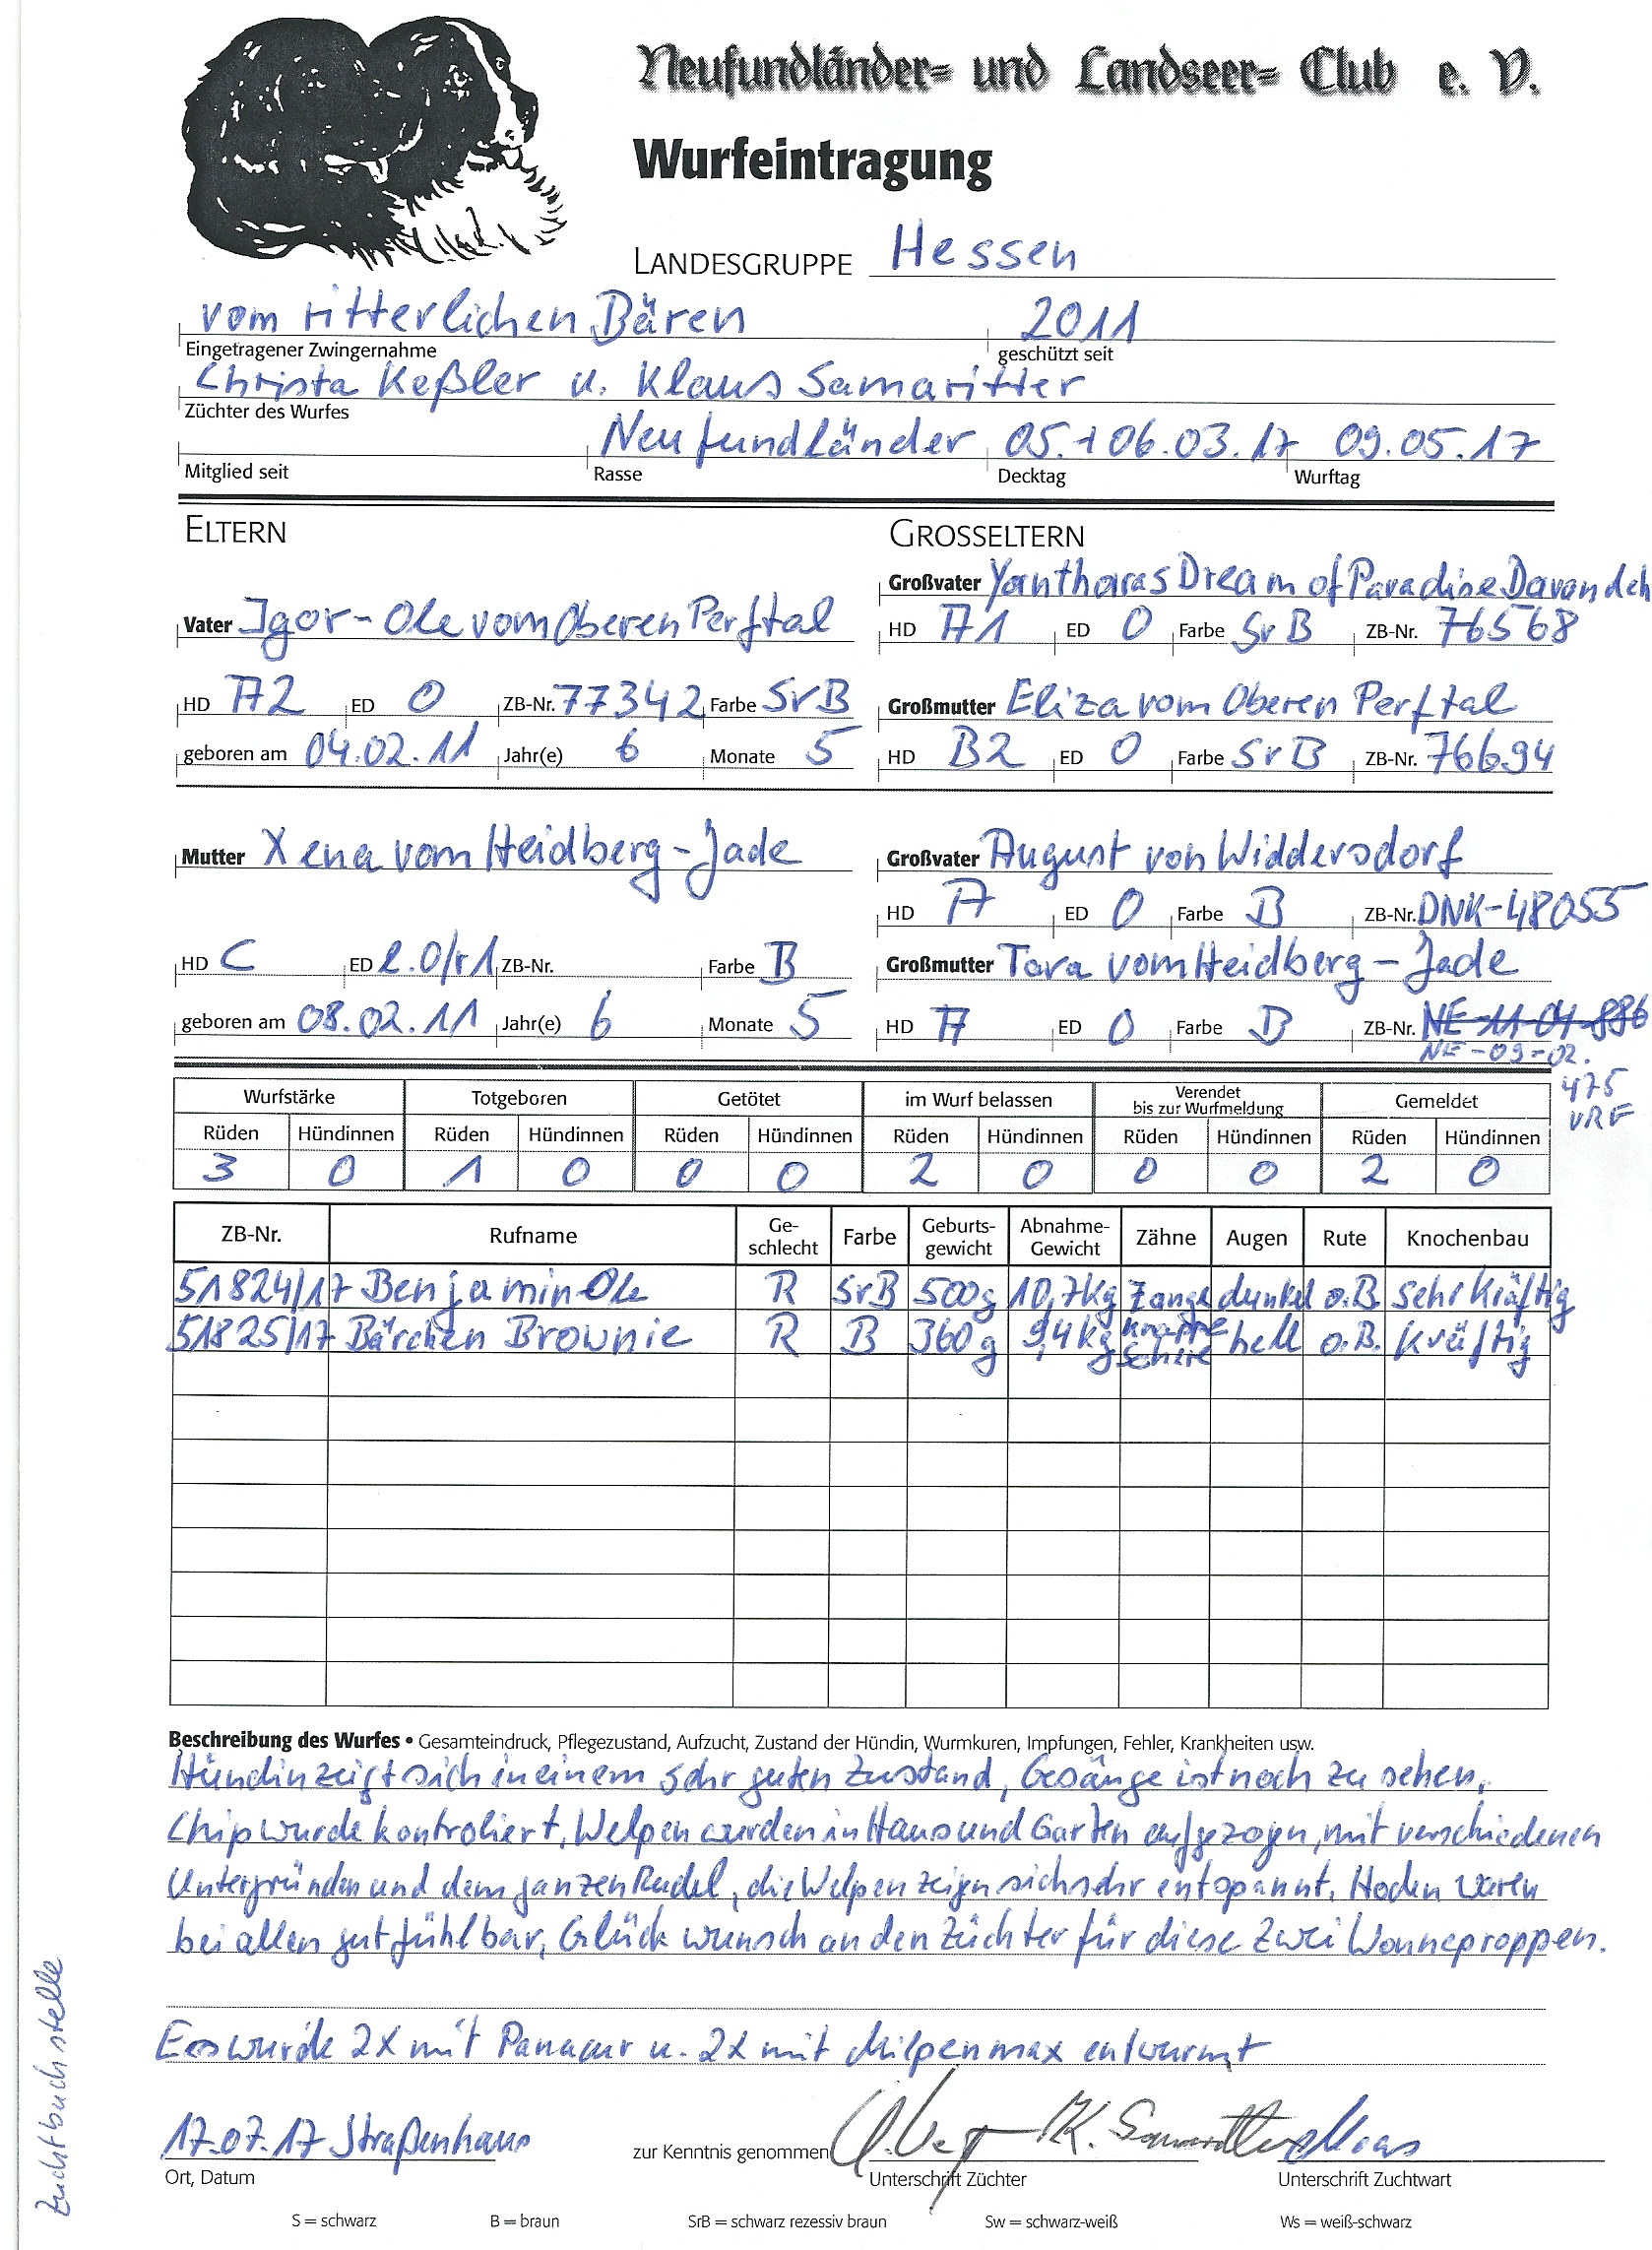 Neufundländer= und Landseer= Club e. V.
Wurfeintragung
LANDESGRUPPE Hessen
vom ritterlichen Bären 2011
Eingetragener Zwingernahme geschützt seit
Christa Keßler u. Klaus Samaritter
Züchter des Wurfes
Neufundländer 05.+06.03.17 09.05.17
Mitglied seit Rasse Decktag Wurftag
ELTERN GROSSELTERN
Großvater Yantharas Dream of Paradise Davondeh
Vater Igor-Ole vom Oberen Perftal
HD A1 ED 0 Farbe SrB ZB-Nr. 76568
HD A2 ED 0 ZB-Nr. 77342 Farbe SrB Großmutter Eliza vom Oberen Perftal
geboren am 04.02.11 Jahr(e) 6 Monate 5 HD B2 ED 0 Farbe SrB ZB-Nr. 76694
Mutter Xena vom Heidberg-Jade Großvater August von Widdersdorf
HD A ED 0 Farbe B ZB-Nr. DNK-48055
HD C ED l.0/r1 ZB-Nr. Farbe B Großmutter Tara vom Heidberg-Jade
geboren am 08.02.11 Jahr(e) 6 Monate 5 HD A ED 0 Farbe B ZB-Nr. NE-11-04-886
NE-09-02.
475
VRF
Wurfstärke Totgeboren Getötet im Wurf belassen Verendet bis zur Wurfmeldung Gemeldet
Rüden Hündinnen Rüden Hündinnen Rüden Hündinnen Rüden Hündinnen Rüden Hündinnen Rüden Hündinnen
3 0 1 0 0 0 2 0 0 0 2 0
ZB-Nr. Rufname Ge-schlecht Farbe Geburts-gewicht Abnahme-Gewicht Zähne Augen Rute Knochenbau
51824/17 Benjamin Ole R SrB 500g 10,7kg Zange dunkel o.B. sehr kräftig
51825/17 Bärchen Brownie R B 360g 9,4kg knappe Schere hell o.B. kräftig
Beschreibung des Wurfes • Gesamteindruck, Pflegezustand, Aufzucht, Zustand der Hündin, Wurmkuren, Impfungen, Fehler, Krankheiten usw.
Hündin zeigt sich in einem sehr guten Zustand, Gesänge ist noch zu sehen,
Chip wurde kontroliert, Welpen wurden in Haus und Garten aufgezogen, mit verschiedenen
Untergründen und dem ganzen Rudel, die Welpen zeigen sich sehr entspannt, Hoden waren
bei allen gut fühlbar, Glückwunsch an den Züchter für diese zwei Wonneproppen.
Es wurde 2x mit Panacur u. 2x mit Milpenmax entwurmt
17.07.17 Straßenhaus zur Kenntnis genommen K. Samaritter
Ort, Datum Unterschrift Züchter Unterschrift Zuchtwart
S = schwarz B = braun SrB = schwarz rezessiv braun Sw = schwarz-weiß Ws = weiß-schwarz
Zuchtbuchstelle